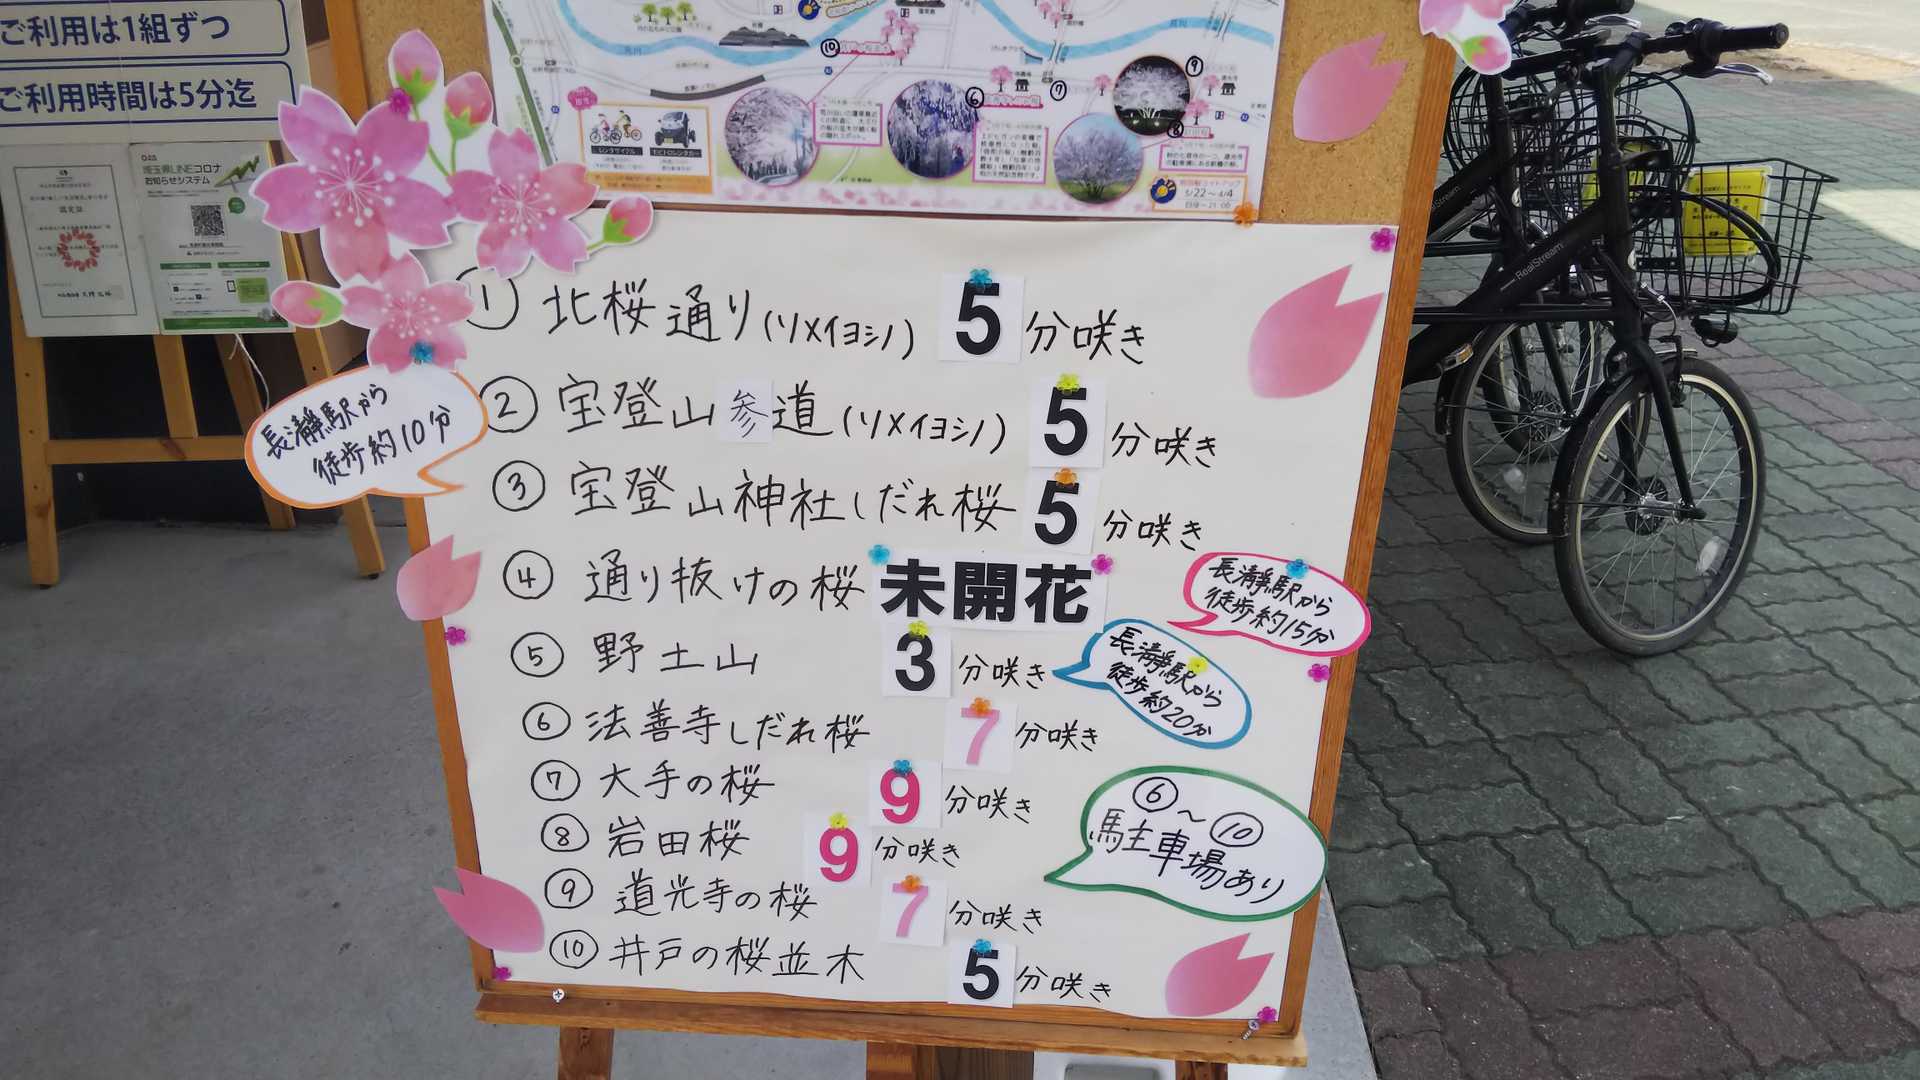 ご利用は1組ずつ
ご利用時間は5分迄
埼玉県LINEコロナ
お知らせシステム
レンタサイクル
3/22～4/4
① 北桜通り(ソメイヨシノ) 5分咲き
② 宝登山参道(ソメイヨシノ) 5分咲き
③ 宝登山神社しだれ桜 5分咲き
④ 通り抜けの桜 未開花
⑤ 野土山 3分咲き
⑥ 法善寺しだれ桜 7分咲き
⑦ 大手の桜 9分咲き
⑧ 岩田桜 9分咲き
⑨ 道光寺の桜 7分咲き
⑩ 井戸の桜並木 5分咲き
長瀞駅から
徒歩約10分
長瀞駅から
徒歩約15分
長瀞駅から
徒歩約20分
⑥～⑩
駐車場あり
RealStream